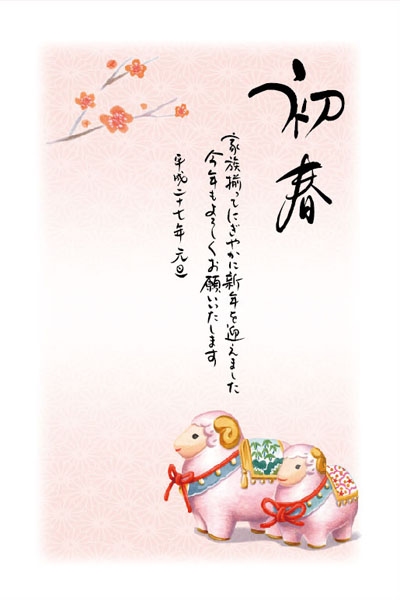 初春
家族揃ってにぎやかに新年を迎えました
今年もよろしくお願いいたします
平成二十七年 元旦